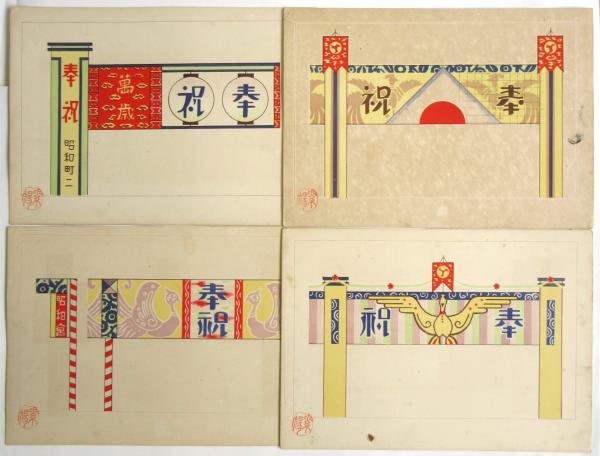 奉祝
昭和町二
萬歳
祝奉
祝奉
昭和会
奉祝
祝奉